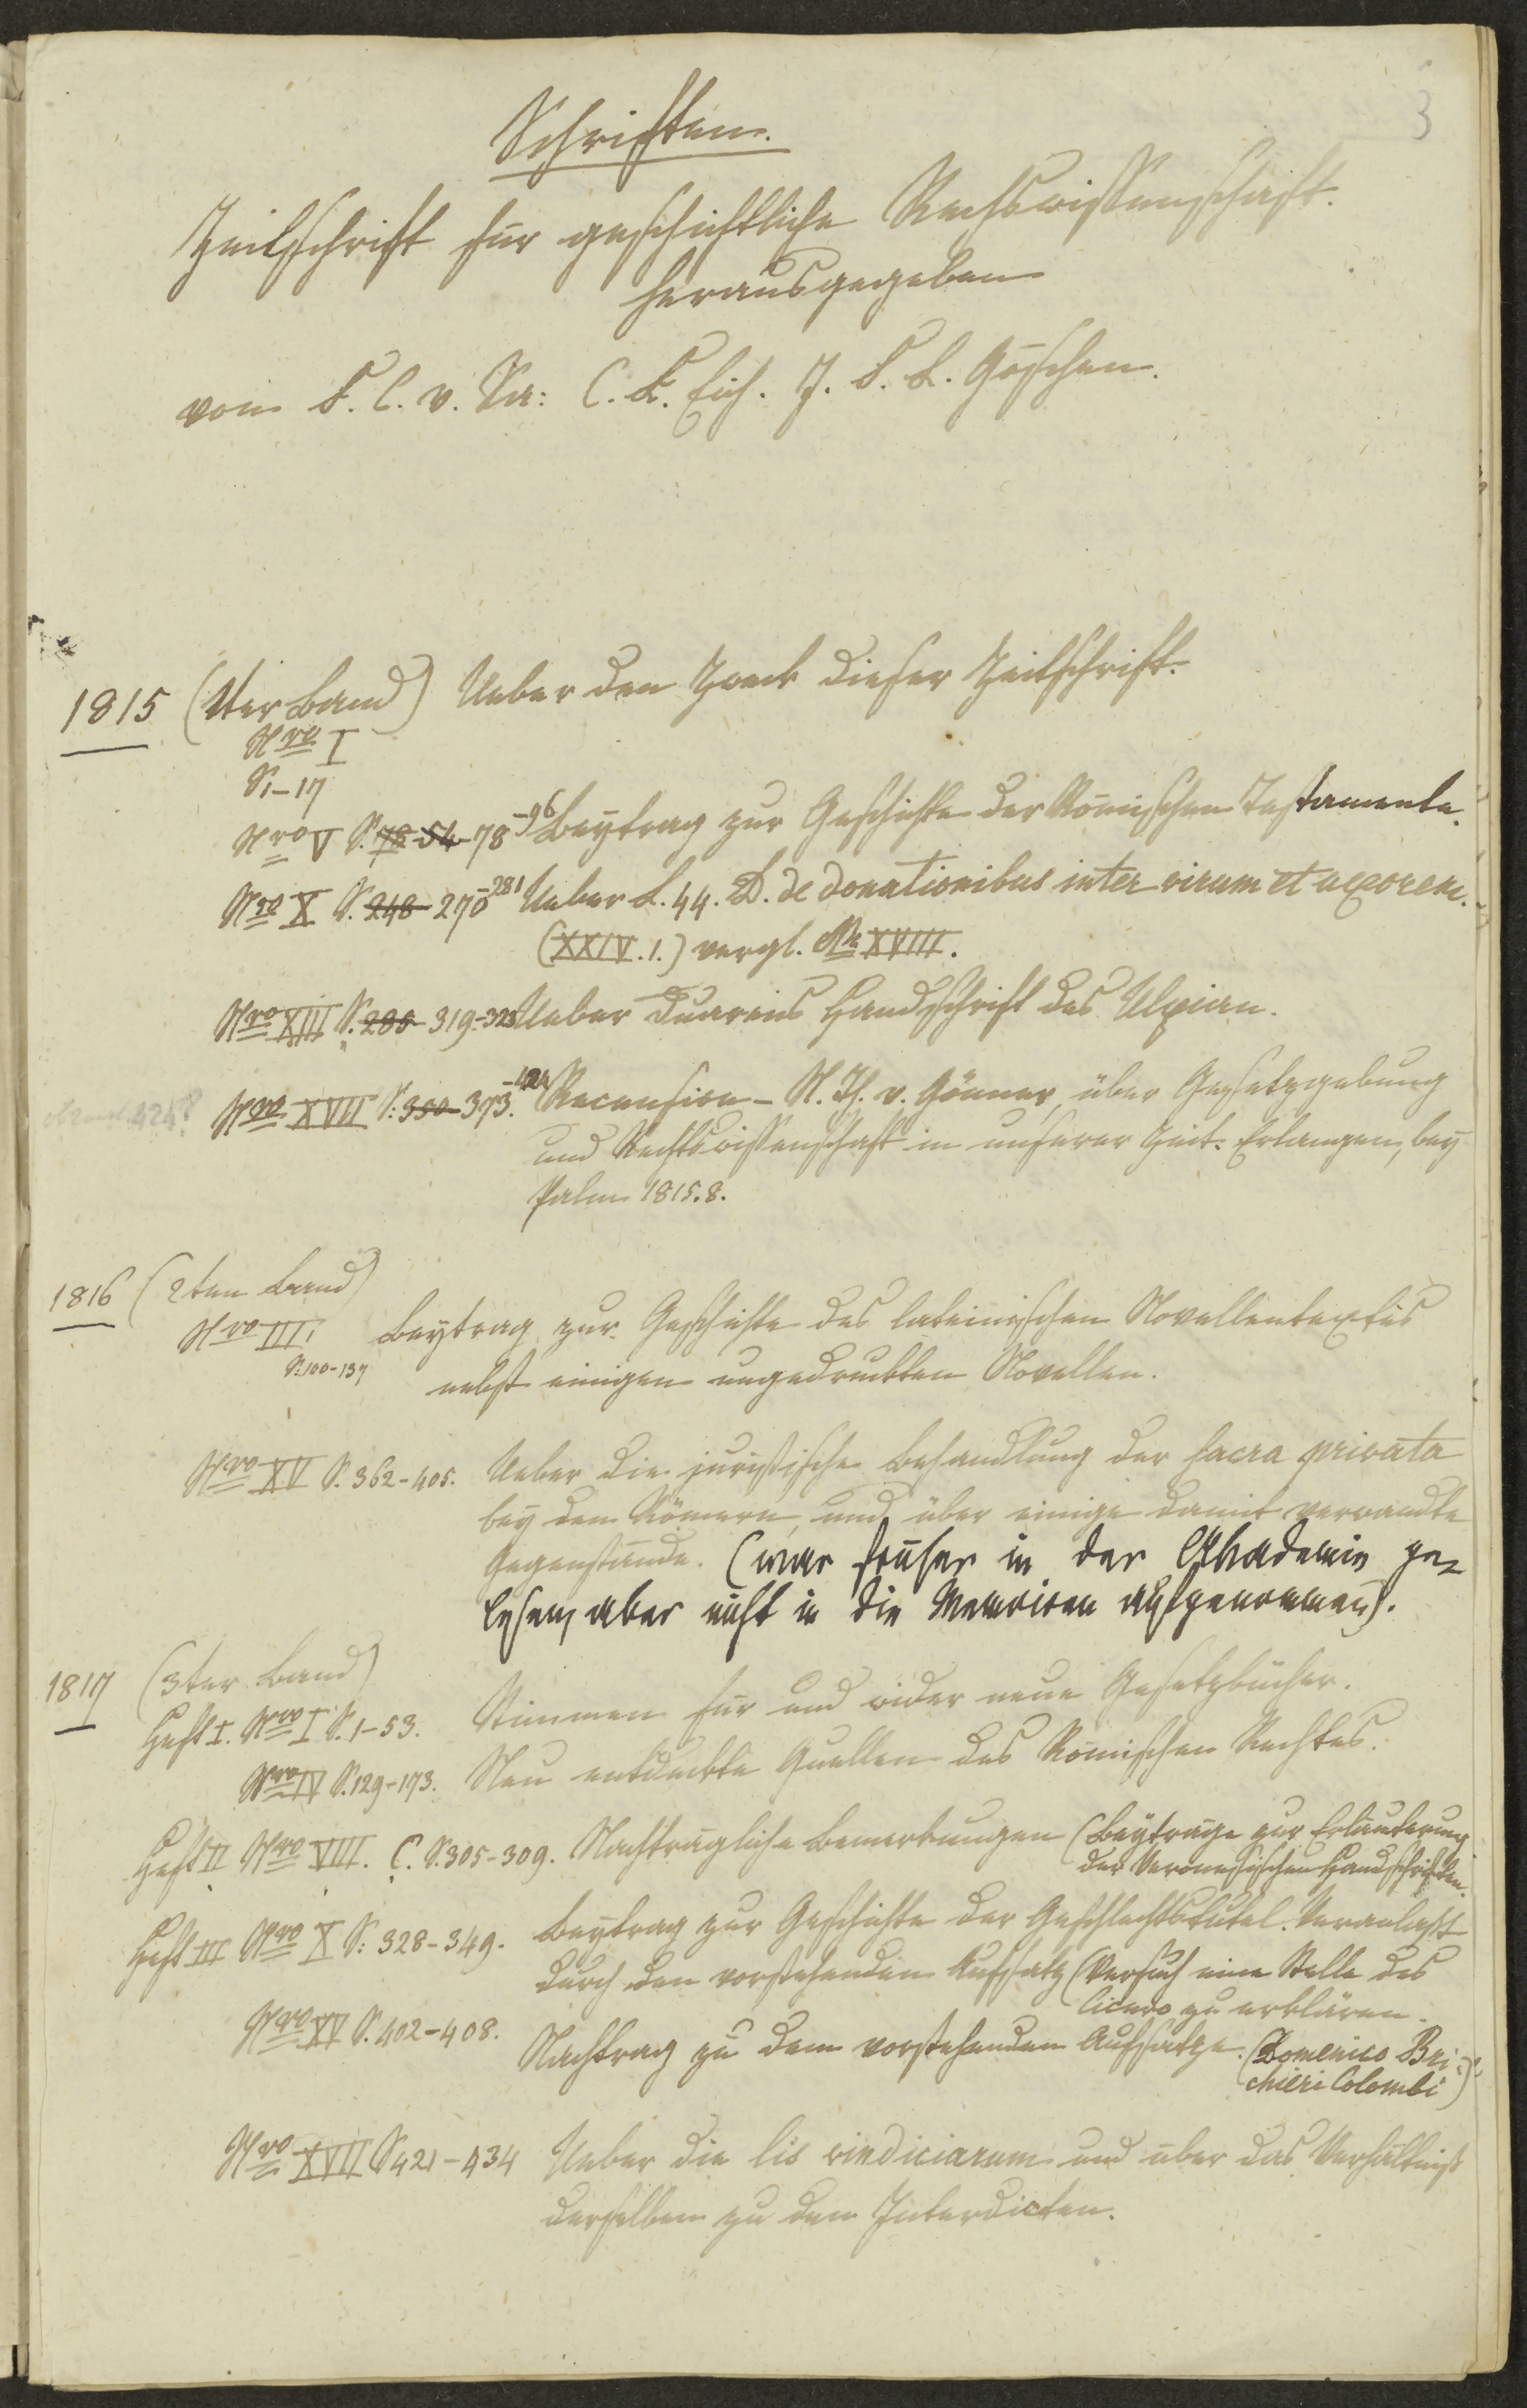 3
Schriften.
Zeitschrift für geschichtliche Rechswissenschaft.
herausgegeben
von F. C. v. Sa: C. F. Eich. J. F. L. Göschen.
1815 (1ter Band) Ueber den Zweck dieser Zeitschrift.
Nro I
S. 1-17
Nro V S. 78 54 78-96 Beytrag zur Geschichte der Römischen Testamente.
Nro X S. 248 270-281 Ueber L. 44. D. de donationibus inter virum et uxorem.
(XXIV. 1.) vergl. Nr. XVIII.
Nro XIII S. 319-323 Ueber Duarens Handschrift des Ulpian.
Nro XVII S. 350 373.-424 Recension - N. Th. v. Gönner, über Gesetzgebung
und Rechtswissenschaft in unserer Zeit. Erlangen, bey
Palm 1815. 8.
1816 (2ten Band)
Nro III. Beytrag zur Geschichte des lateinischen Novellentextes
S. 100-137 nebst einigen ungedruckten Novellen.
Nro XV S. 362-405. Ueber die juristische Behandlung der sacra privata
bey den Römern, und über einige damit verwandte
Gegenstände. (war früher in der Akademie ge-
lesen, aber nicht in die Memoiren aufgenommen).
1817 (3ter Band)
Heft I. Nro I S. 1-53. Stimmen für und wider neue Gesetzbücher.
Nro IV S. 129-173. Neu entdeckte Quellen des Römischen Rechtes.
Heft II Nro VIII. C. S. 305-309. Nachträgliche Bemerkungen (Beyträge zur Erläuterung
der Veronesischen Handschriften.
Heft III Nro X S: 328-349. Beytrag zur Geschichte der Geschlechtstutel. Veranlaßt
durch den vorstehenden Aufsatz (Versuch eine Stelle des
Cicero zu erklären.
Nro XV S. 402-408. Nachtrag zu dem vorstehenden Aufsatze. (Domenico Bri-
chieri Colombi)
Nro XVII S 421-434 Ueber die lis vindiciarum und über das Verhältniß
derselben zu den Interdicten.